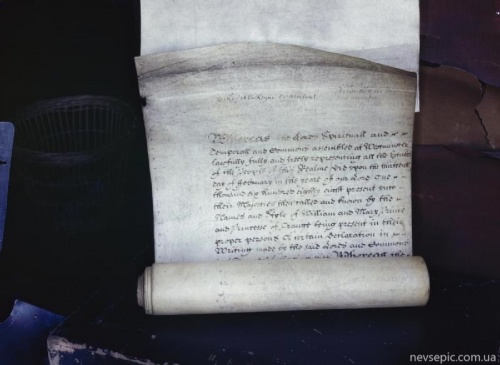 Whereas the Lords Spirituall and
Temporall and Commons assembled at Westminster
lawfully fully and freely representing all the Estates
of the People of this Realme did upon the thirteenth
day of February in the yeare of our Lord One
thousand six hundred eighty eight present unto
their Majesties then called and known by the
Names and Stile of William and Mary Prince
and Princesse of Orange being present in their
proper persons A certain Declaration in
Writing made by the said Lords and Commons
Whereas the
nevsepic.com.ua